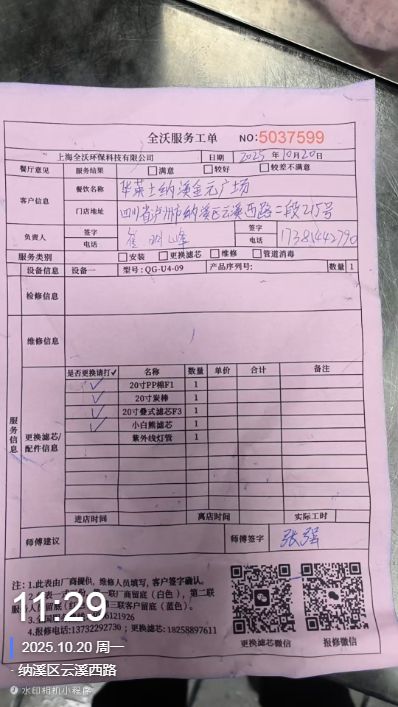 全沃服务工单 NO:5037599
上海全沃环保科技有限公司 日期 2025 年 10 月 20 日
餐厅意见 服务结果 □满意 □较好 □较差不满意
客户信息 餐饮名称 华莱士纳溪金元广场
门店地址 四川省泸州市纳溪区云溪西路二段215号
负责人 签字 签字
电话 电话 17381442790
服务类别 □安装 □更换滤芯 □维修 □管道消毒
设备信息 设备一 型号:QG-U4-09 产品序列号: 数量 1
检修信息
维修信息
服务信息
更换滤芯/配件信息
是否更换请打✓ 名称 数量 单价 合计 备注
✓ 20寸PP棉F1 1
✓ 20寸炭棒 1
✓ 20寸叠式滤芯F3 1
✓ 小白熊滤芯 1
紫外线灯管 1
进店时间 离店时间 实际工时
师傅建议 师傅签字 张强
注:1.此表由厂商提供,维修人员填写,客户签字确认。
联厂商留底(白色),第二联
客户留底(蓝色)。
4.报修电话:13732292730;更换滤芯:18258897611
更换滤芯微信 报修微信
11:29
2025.10.20 周一
·纳溪区云溪西路
水印相机小程序